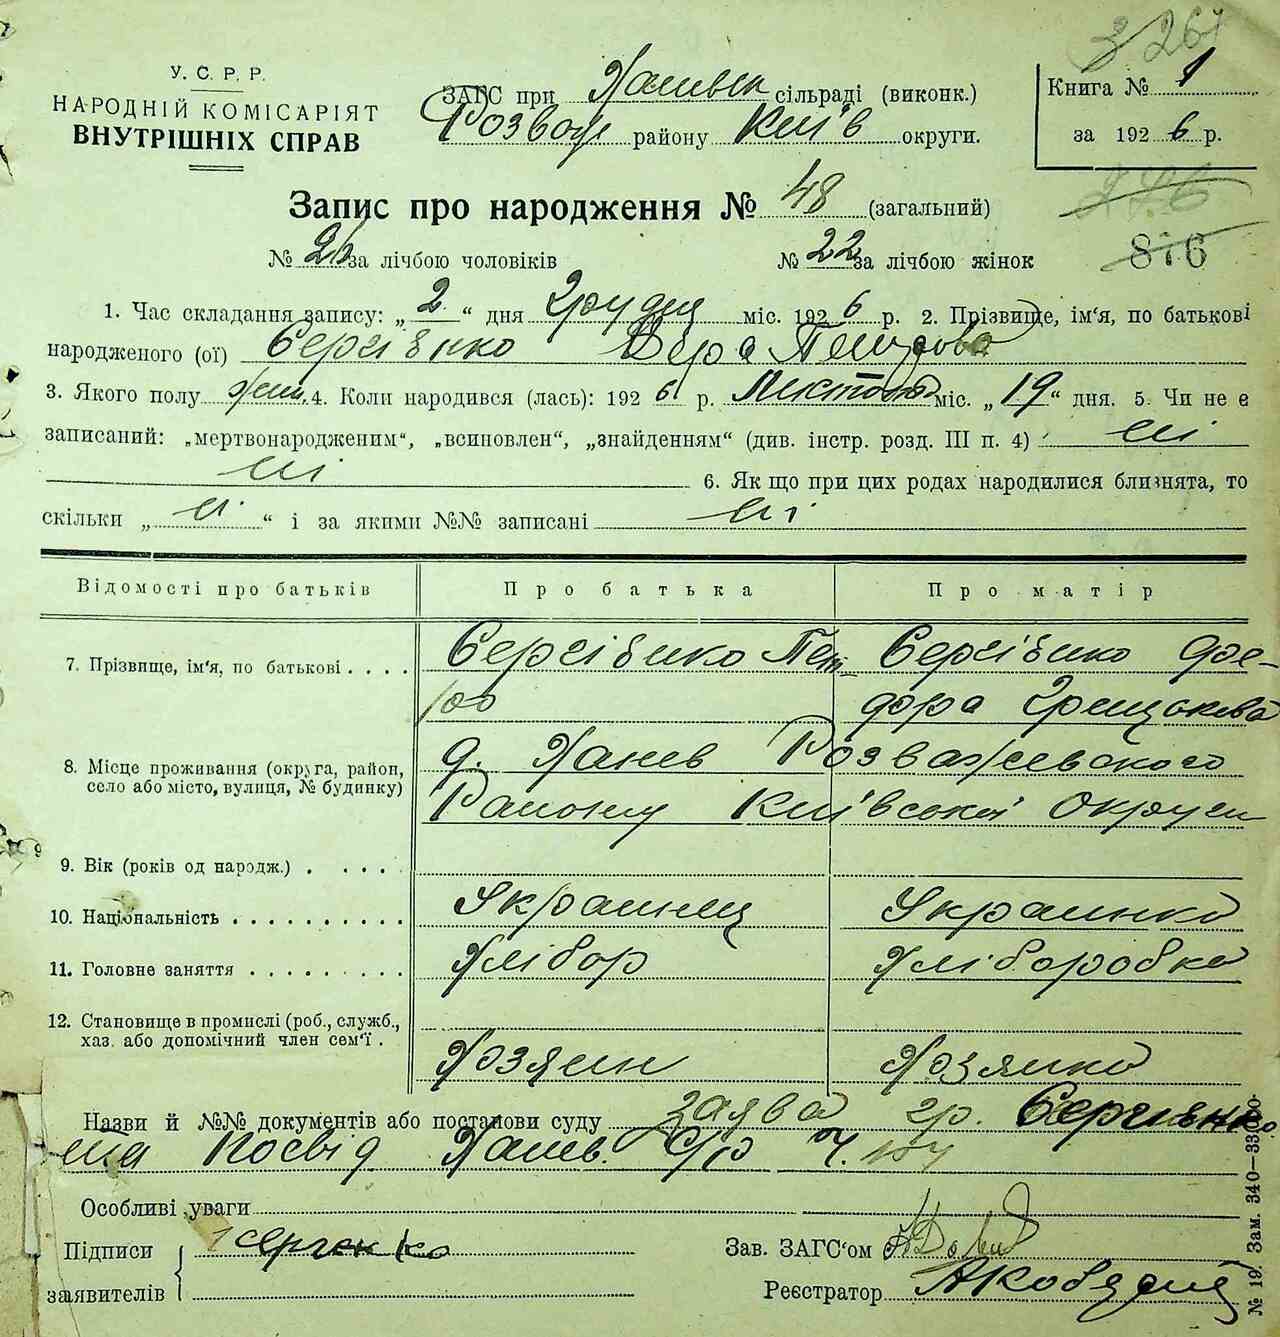 3 267
У. С. Р. Р.
НАРОДНІЙ КОМІСАРІЯТ
ВНУТРІШНІХ СПРАВ
ЗАГС при Ханевск сільраді (виконк.)
Розваж району Київ округи.
Книга № 1
за 1926 р.
Запис про народження № 48 (загальний)
776
№ 26 за лічбою чоловіків № 22 за лічбою жінок
876
1. Час складання запису: „2“ дня Грудня міс. 1926 р. 2. Прізвище, ім'я, по батькові
народженого (ої) Єрсівнко Вера Петрова
3. Якого полу жен. 4. Коли народився (лась): 1926 р. Листопад міс. „19“ дня. 5. Чи не є
записаний: „мертвонародженим“, „всиновлен“, „знайденням“ (див. інстр. розд. III п. 4) ні
ні 6. Як що при цих родах народилися близнята, то
скільки „ні“ і за якими №№ записані ні
Відомості про батьків Про батька Про матір
7. Прізвище, ім'я, по батькові . . . . Єрсівнко Пет Єрсівнко Фео-
ро дора
8. Місце проживання (округа, район, село або місто, вулиця, № будинку) д. Ханев Розважевского
Району Київської Округи
9. Вік (років од народж.) . . . . .
10. Національність . . . . . . . . . . Украинец Украинка
11. Головне заняття . . . . . . . . . Хлібор Хліборобка
12. Становище в промислі (роб., служб.,
хаз. або допомічний член сем'ї . Хозяин Хозяика
Назви й №№ документів або постанови суду заява гр.
та Посвід Ханев. С/р Ч.
Особливі уваги
Підписи
заявителів
Зав. ЗАГС'ом
Реєстратор
№ 19. Зам. 340—33.000.